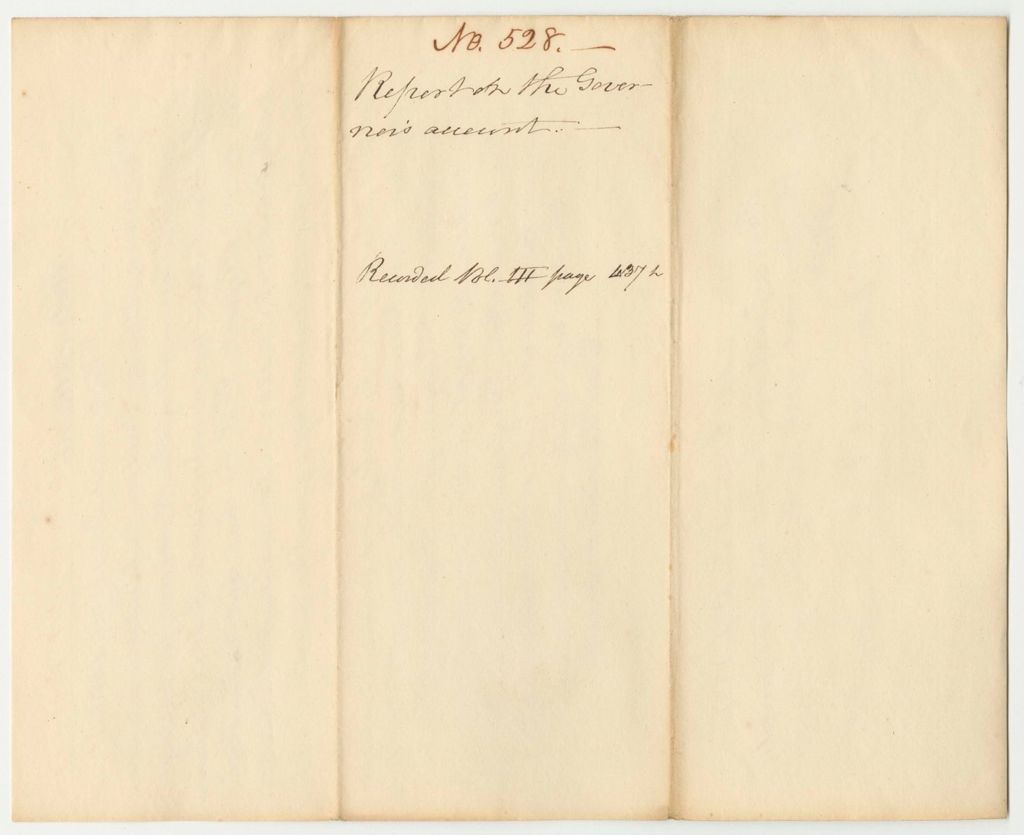 No. 528. —
Report on the Gover-
nor's account. —
Recorded Vol. III page 437